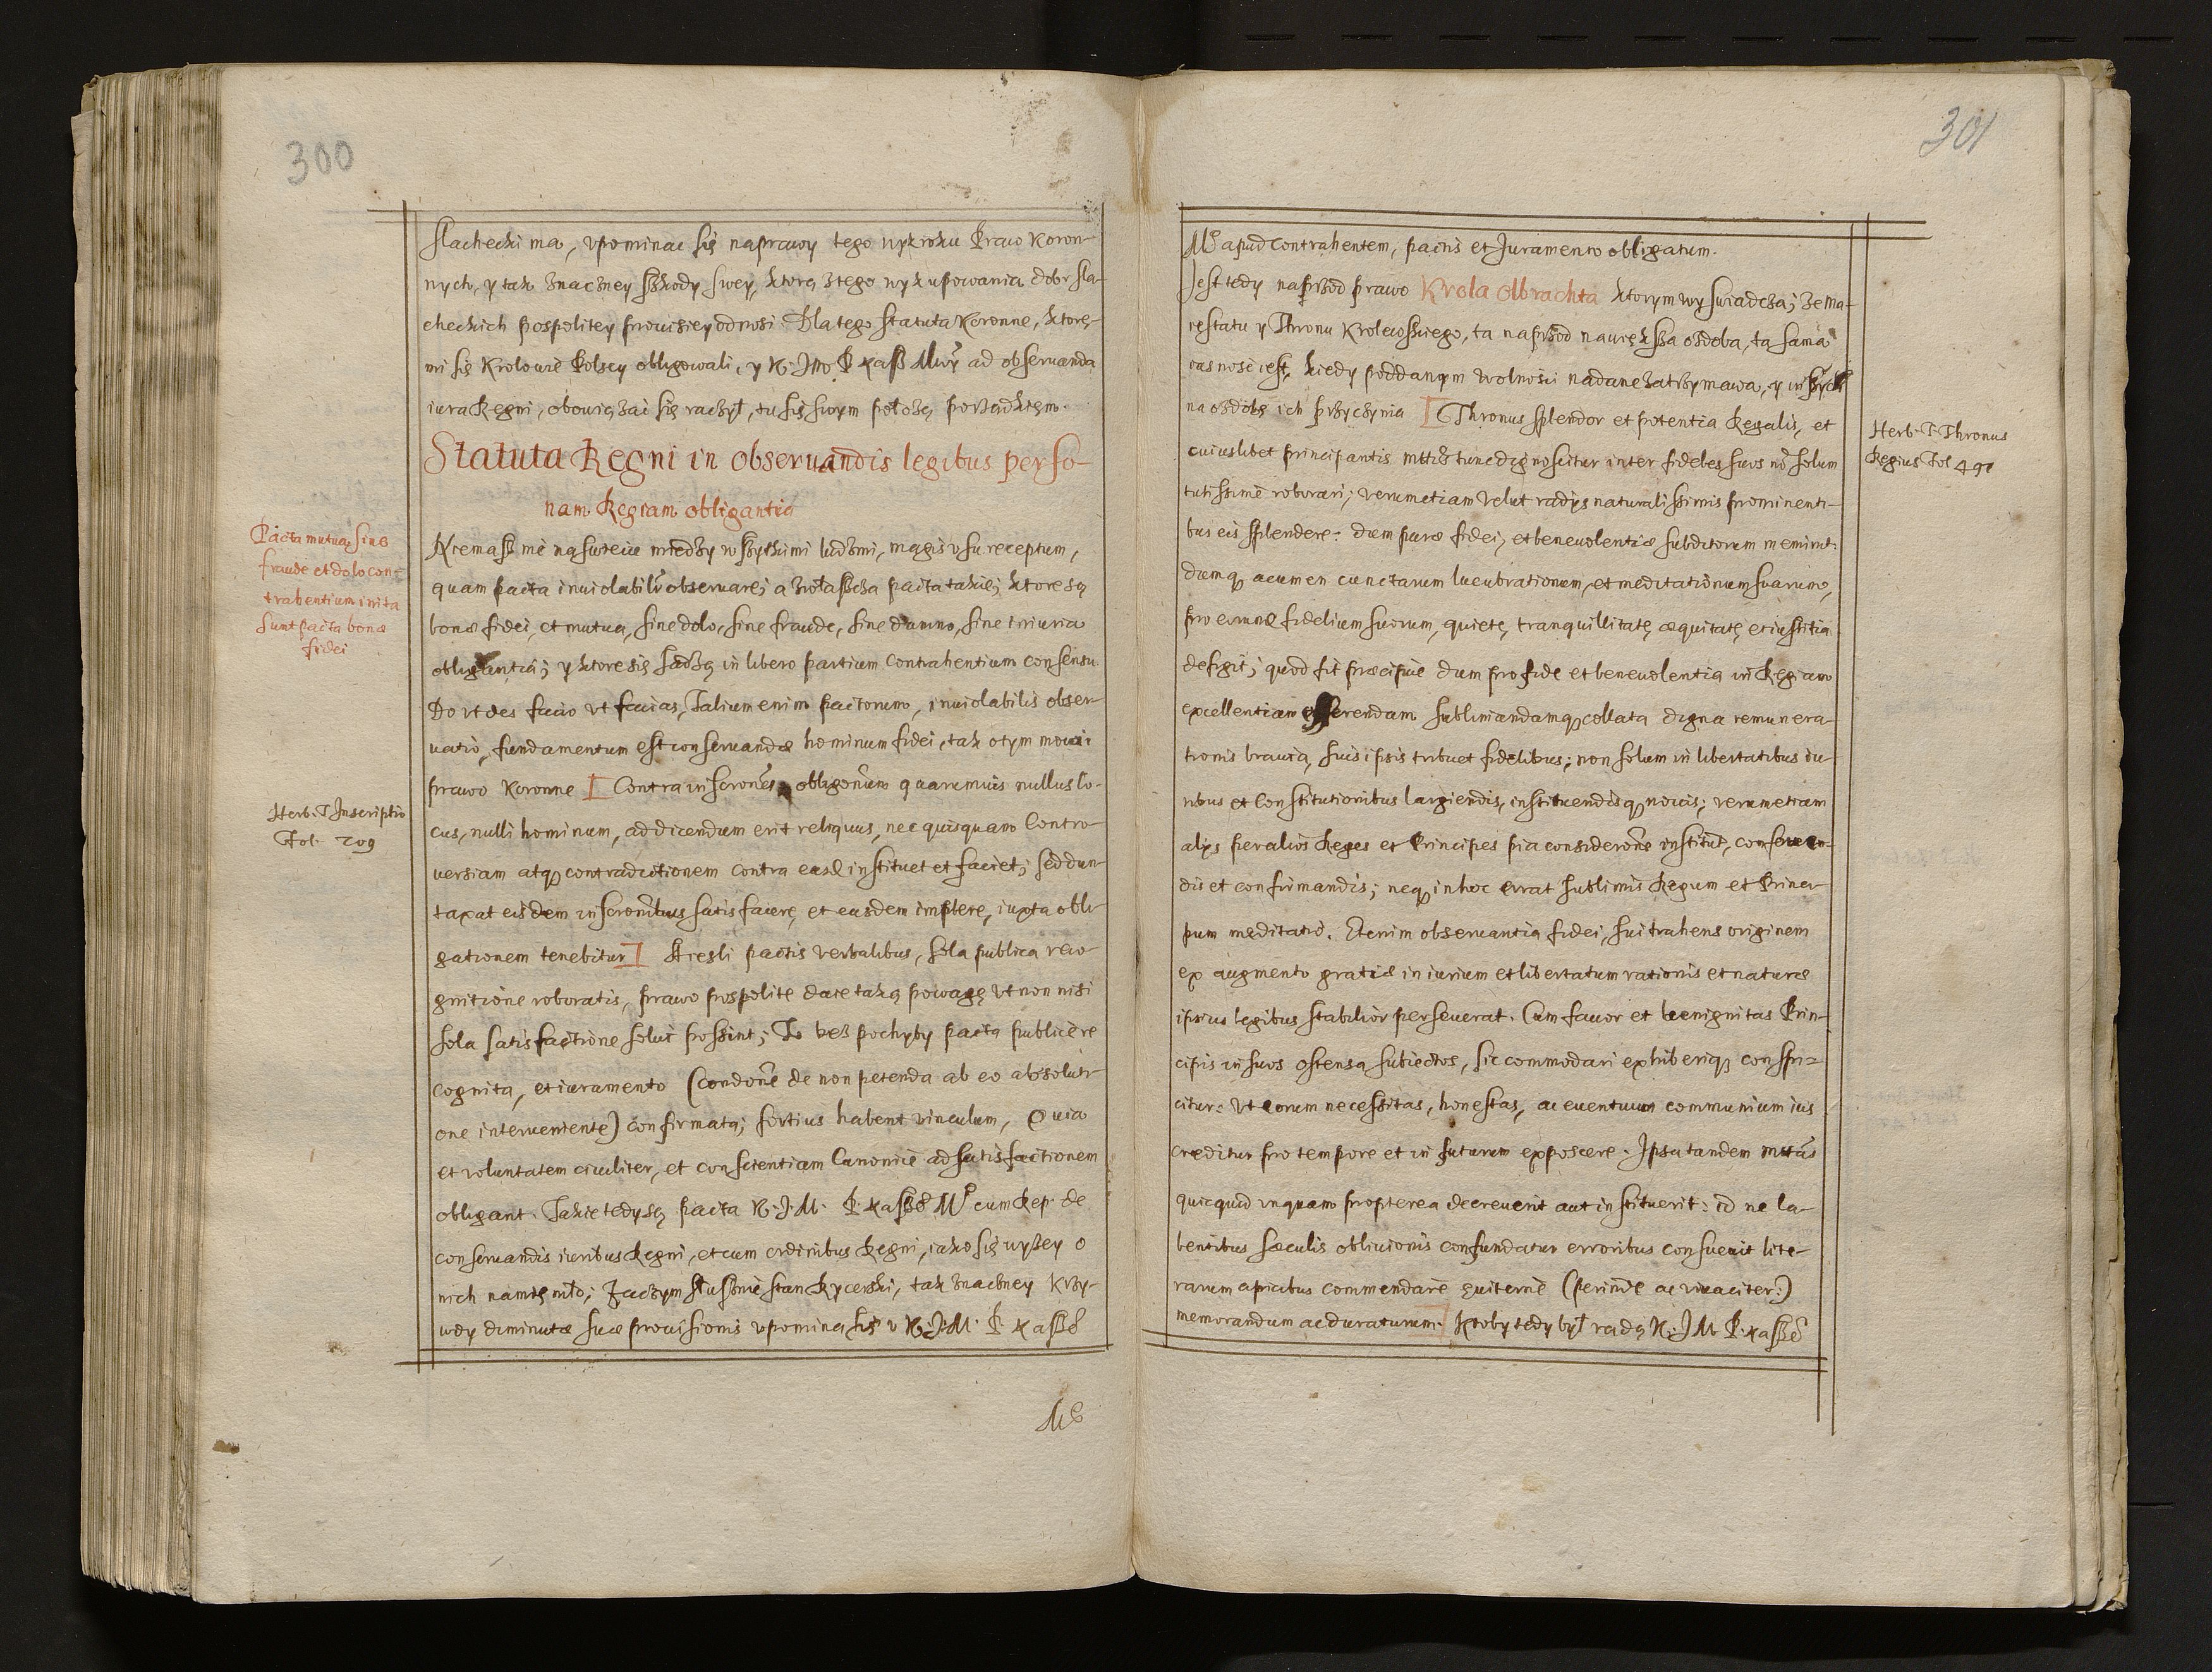 300
slachecki ma, vpominac się naprawy tego wykroku Prawo Koron-
nych, y tak znaczney szkody swey, ktorą ztego wykupowania dobr sla-
checkich pospolitey prouisiey odnosi. Dla tego Statuta Koronne, ktorę-
mi się Krolowie Polscy obligowali, y K. Jm̃ P ad obseruanda
iura Regni, obowiązac się raczył, tu się swym położą porządkięm.
Statuta Regni in obseruandis legibus perso-
nam Regiam obligantia
Pacta mutua, sine
fraude et dolo con-
trahentium inita
sunt pacta bonæ
fidei
Niemasz nic na swiecie miedzy wszytkimi ludzmi, magis vsu receptum,
quam pacta inuiolabilr̃ obseruare; a zwłaszcza pacta takie; ktore są
bonæ fidei, et mutua, sine dolo, sine fraude, sine damno, sine iniuria
obligantia; y ktore się sadzą in libero partium contrahentium consensu
Do vt des facio vt facias, Talium enim pactorum, inuiolabilis obser-
uatio, fundamentum est conseruandæ hominum fidei, tak o tym mowi
prawo Koronne [ Contra inscrones obligonum quarumuis nullus lo-
cus, nulli hominum, ad dicendum erit reliquus, nec quisquam Contro-
Herb. T Inscriptio
Fol. 209
uersiam atq contradictionem contra easd instituet et faciet; sed dun-
taxat eisdem inscronibus satisfacere, et easdem implere, iuxta obli-
gationem tenebitur] A iesli pactis verbalibus, sola publica reco-
gnitione roboratis, prawo pospolite daie taką powagę vt non nisi
sola satisfactione solui possint; To bez pochyby pacta publice re
cognita, et iuramento (condone de non petenda ab eo absoluti-
one interueniente) confirmata; fortius habent vinculum, Quia
et voluntatem ciuiliter, et conscientiam Canonice ad satisfactionem
obligant. Takie tedy są pacta K. J. M. P. cum Rep. de
conseruandis iuribus Regni, et cum ordinibus Regni, iako się wyżey o
nich namięniło; Zaczym słusznie stan Rycerski, tak znaczney krzy-
wdy diminutæ suæ prouisionis vpomina się v K. J. M. P.
Me
301
Me apud contrahentem, pactis et Juramento obligatum.
Jest tedy naprzod prawo Krola Olbrachta ktorym wyswiadcza; ze Ma-
iestatu y Thronu Krolewskiego, ta naprzod nawiększa ozdoba, ta sama
iest, kiedy poddanym wolnosci nadane zatrzymawa, y inszych
na ozdobę ich przyczynia [ Thronus splendor et potentia Regalis, et
Herb. T. Thronus
Regius Fol 491
cuiuslibet principantis mttis tunc dignoscitur inter fideles suos no solum
tutissime roborari; verumetiam velut radijs naturalissimis prominenti-
bus eis splendere: dum puræ fidei, et beneuolentiæ subditorum meminit:
dumq acumen cunctarum lucubrationum, et meditationum suarum,
pro fidelium suorum, quiete, tranquillitate, æquitate, et iustitia
defigit; quod fit præcipue dum pro fide et beneuolentia in Regiam
excellentiam efferendam sublimandamq collata digna remunera-
tionis brauia, suis ipsis tribuet fidelibus; non solum in libertatibus iu-
ribus et Constitutionibus largiendis, instituendisq nouis; verumetiam
alijs per alios Reges et Principes pia consideroñe institut, conseruan-
dis et confirmandis; neq in hoc errat sublimis Regum et Princi-
pum meditatio. Etenim obseruantia fidei, sui trahens originem
ex augmento gratiæ in iurium et libertatum rationis et naturæ
ipsius legibus stabilior perseuerat. Cum fauor et benignitas Prin-
cipis in suos ostensa subiectos, sic commodari exhiberiq conspi-
citur: vt eorum necessitas, honestas, ac euentuum communium ius
creditur pro tempore et in futurum exposcere. Ipsa tandem mttas
quicquid inquam propterea decreuerit aut instituerit: id ne la-
bentibus sæculis obliuionis confundatur erroribus consueuit lite-
rarum apicibus commendare (perinde ac viuaciter:)
memorandum ac duraturum.] Ktoby tedy był radą K. J M. P.